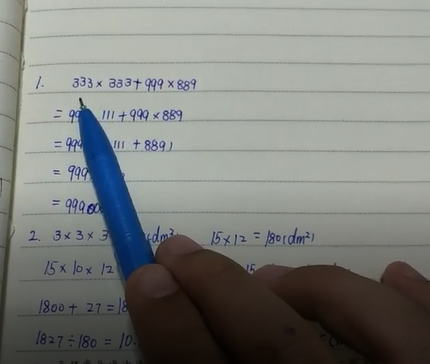 1. 333 × 333 + 999 × 889
= 99 111 + 999 × 889
= 999 111 + 889)
= 999
= 999000
2. 3 × 3 × 3 = (dm³) 15 × 12 = 180(dm²)
15 × 10 × 12 15
1800 + 27 = 18
1827 ÷ 180 = 10.